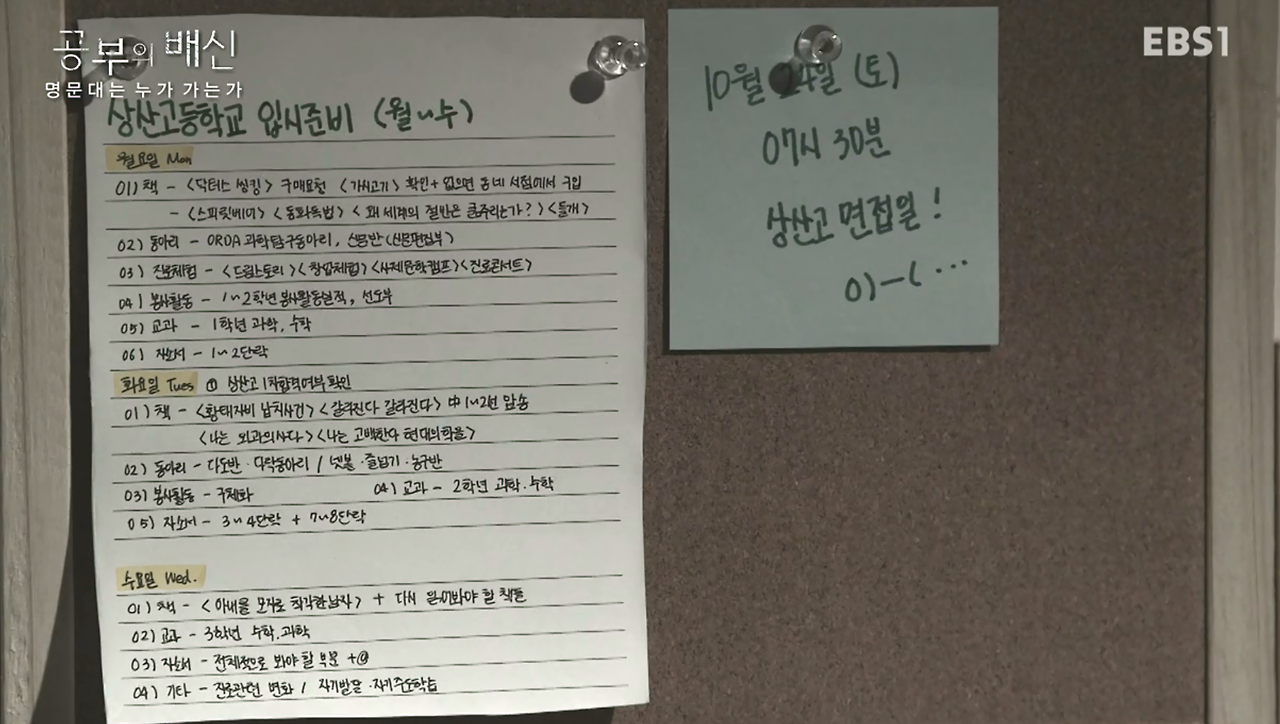 공부의 배신
명문대는 누가 가는가
EBS1
상산고등학교 입시준비 (월~수)
월요일 Mon
01) 책 - <닥터스 씽킹> 구매요청 <가시고기> 확인 + 없으면 동네 서점에서 구입
- <스피릿베어> <동화독법> <왜 세계의 절반은 굶주리는가?> <들개>
02) 동아리 - ORDA 과학탐구동아리, 신문반(신문편집부)
03) 진로체험 - <드림스토리> <창업체험> <사제문학캠프> <진로콘서트>
04) 봉사활동 - 1~2학년 봉사활동실적, 선도부
05) 교과 - 1학년 과학, 수학
06) 자소서 - 1~2단락
화요일 Tues ① 상산고 1차합격여부 확인
01) 책 - <황태자비 납치사건> <갈라진다 갈라진다> 中 1~2편 암송
<나는 외과의사다> <나는 고백한다 현대의학을>
02) 동아리 - 다도반 · 다락동아리 / 넷볼 · 줄넘기 · 농구반
03) 봉사활동 - 구체화 04) 교과 - 2학년 과학 · 수학
05) 자소서 - 3~4단락 + 7~8단락
수요일 Wed.
01) 책 - <아내를 모자로 착각한 남자> + 다시 읽어봐야 할 책들
02) 교과 - 3학년 수학, 과학
03) 자소서 - 전체적으로 봐야 할 부분 +@
04) 기타 - 진로관련 변화 / 자기발달 · 자기주도학습
10월 24일 (토)
07시 30분
상산고 면접일!